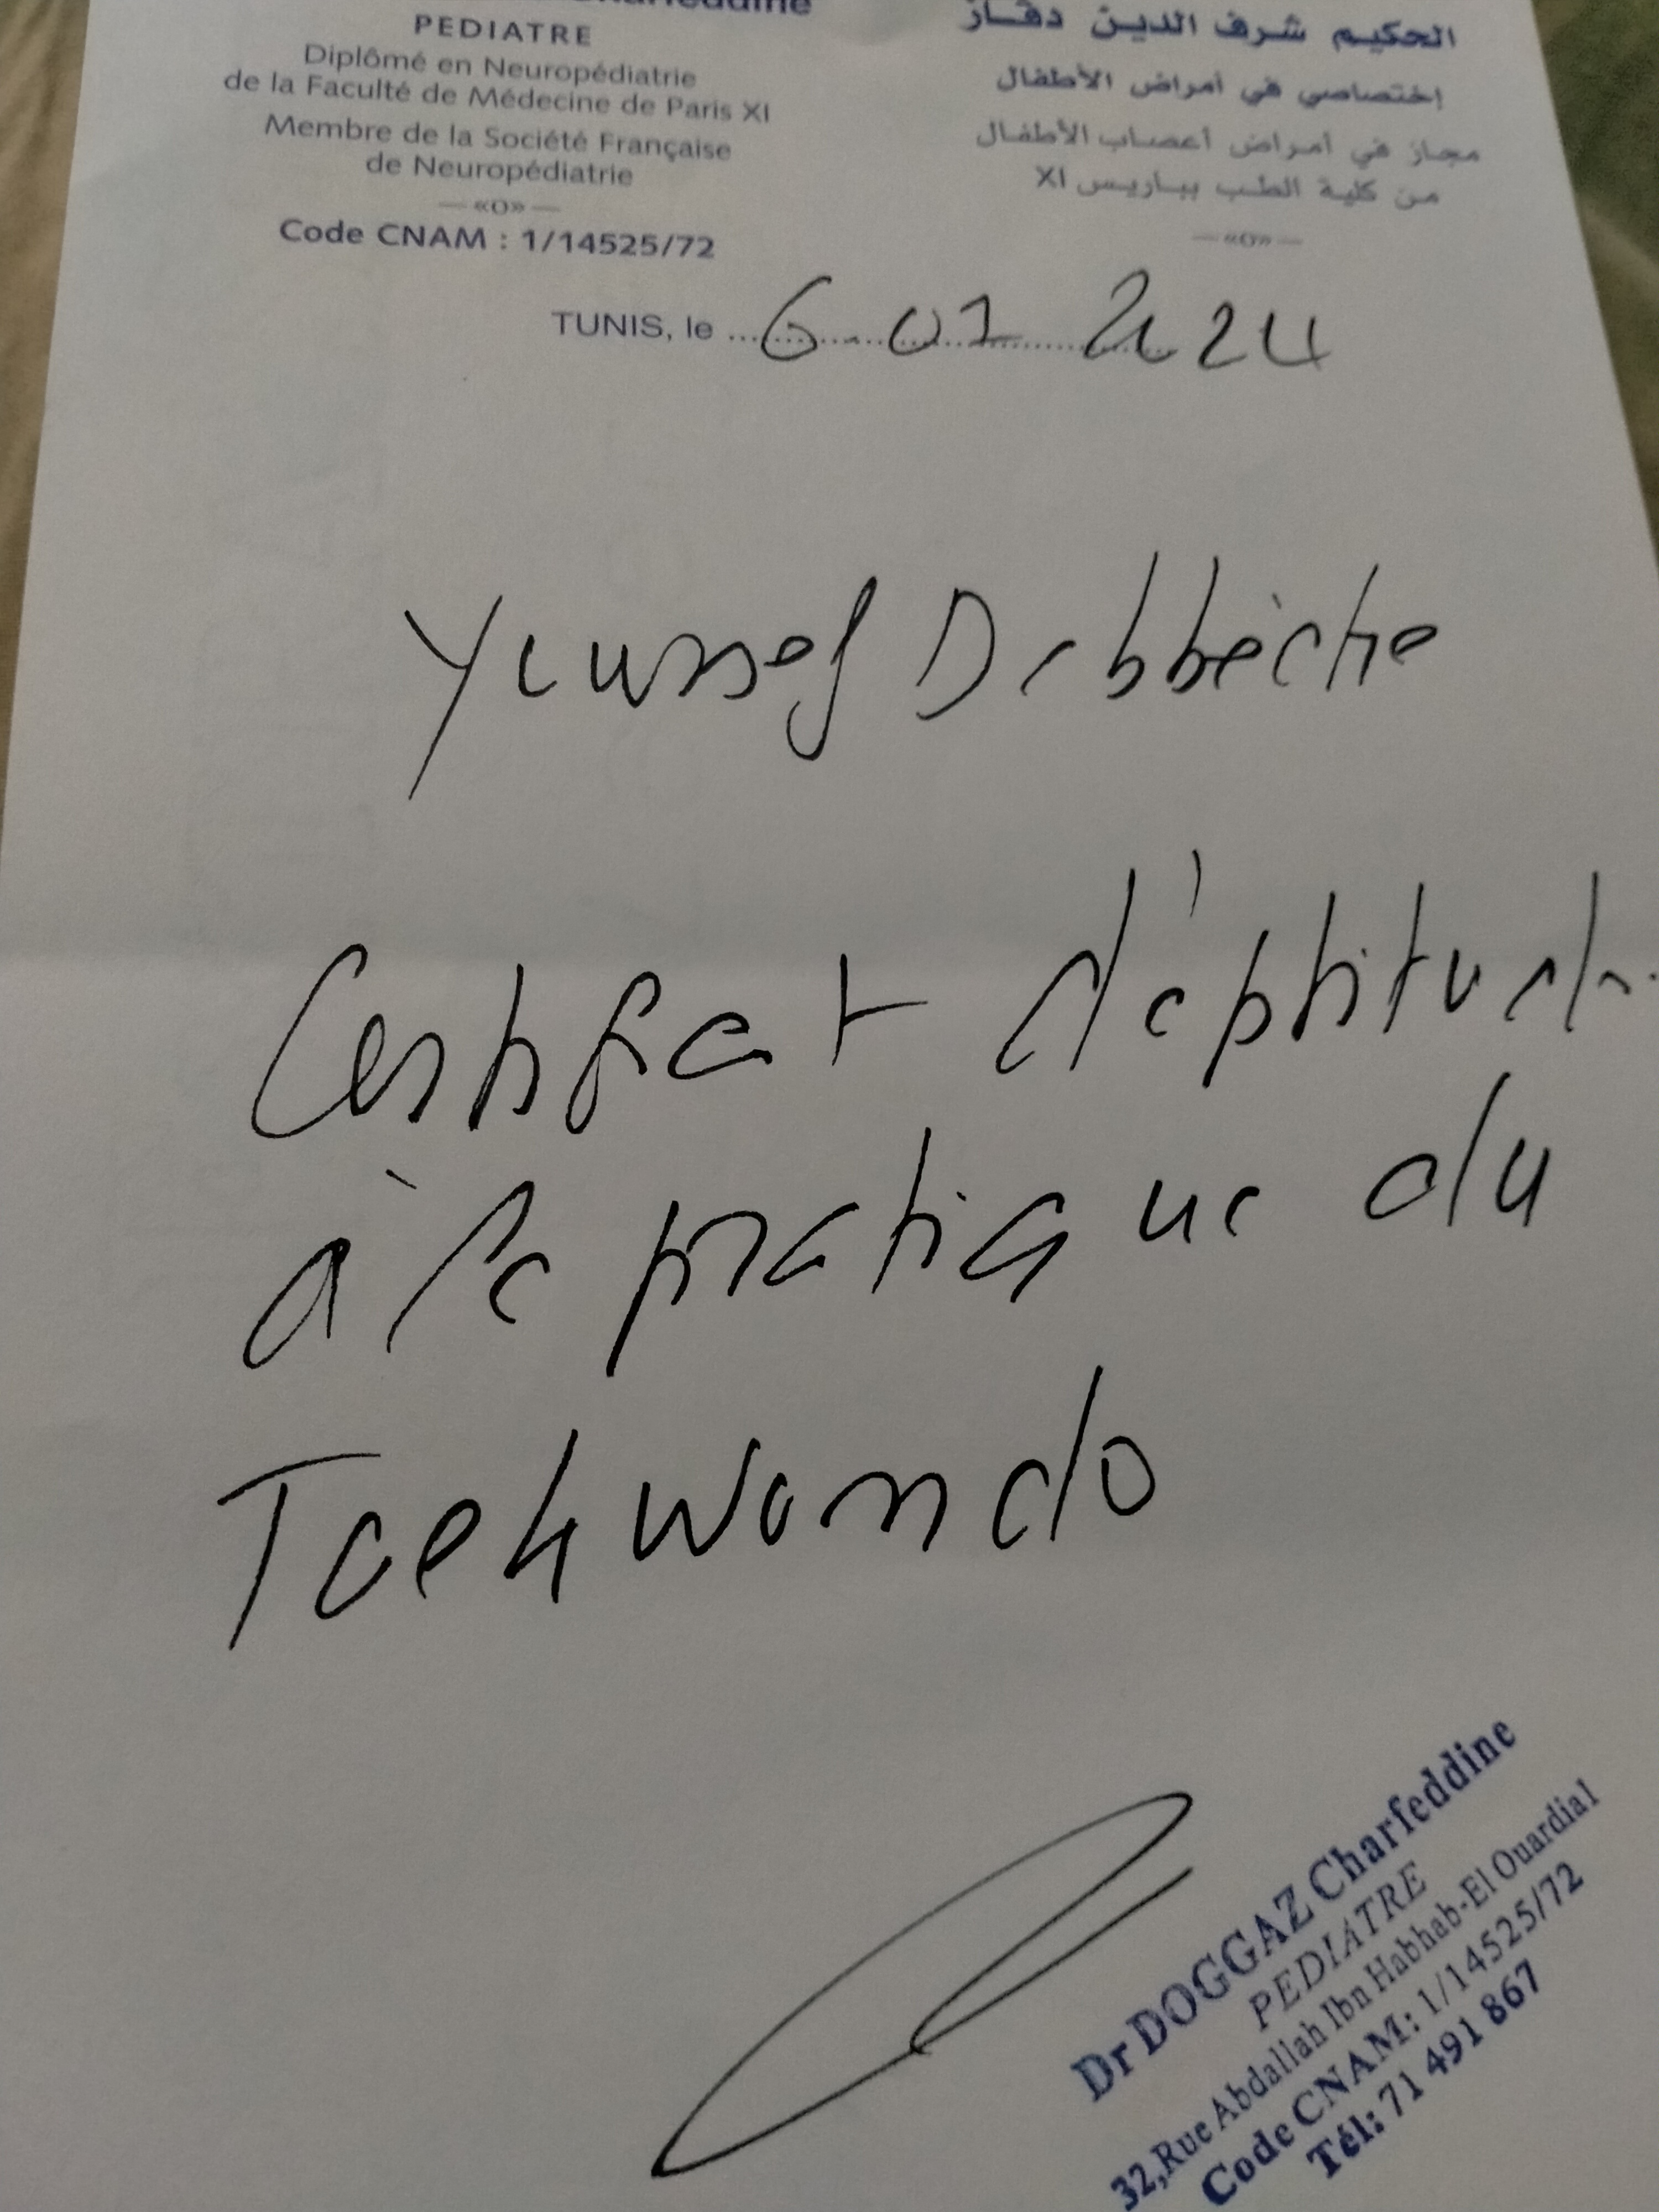 Charfeddine
PEDIATRE
Diplômé en Neuropédiatrie
de la Faculté de Médecine de Paris XI
Membre de la Société Française
de Neuropédiatrie
—«O»—
Code CNAM : 1/14525/72
الحكيم شرف الدين دقاز
إختصاصي في أمراض الأطفال
مجاز في أمراض أعصاب الأطفال
من كلية الطب بباريس XI
—«O»—
TUNIS, le 6.01 2024
Youssef Dabbèche
Certificat d'aptitude
à la pratique du
Taekwondo
Dr DOGGAZ Charfeddine
PEDIATRE
32,Rue Abdallah Ibn Habhab-El Ouardia1
Code CNAM: 1/14525/72
Tél: 71 491 867